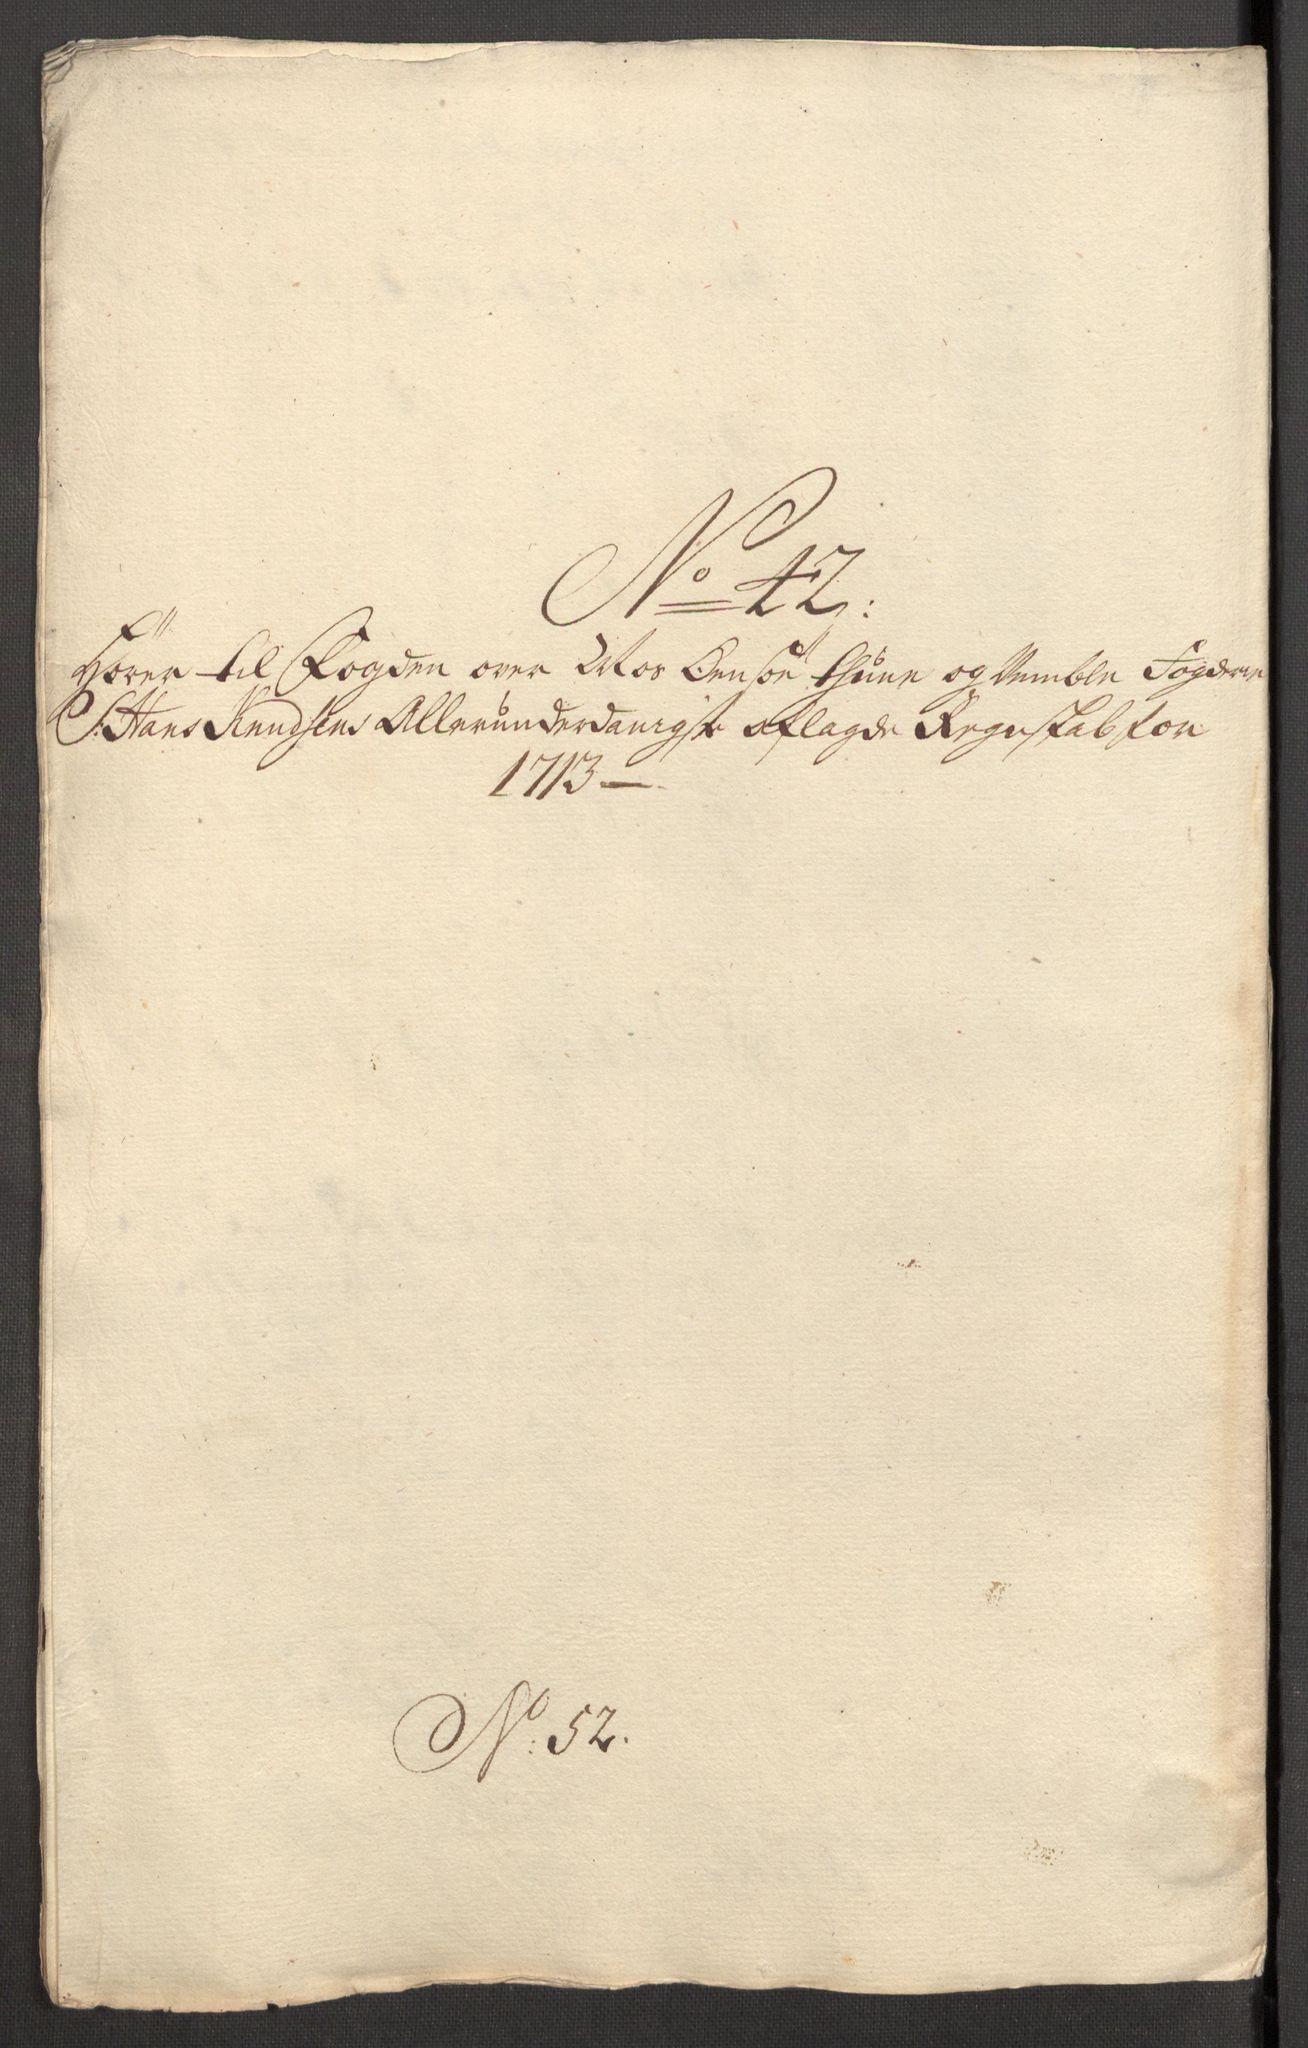 No 42:
Hører til Fogden over Mos Onsøe thune og Vemble Fogderie
Sr: Hans Knudsens Allerunderdanigste aflagde Regnskab for
1713 —
No: 52.